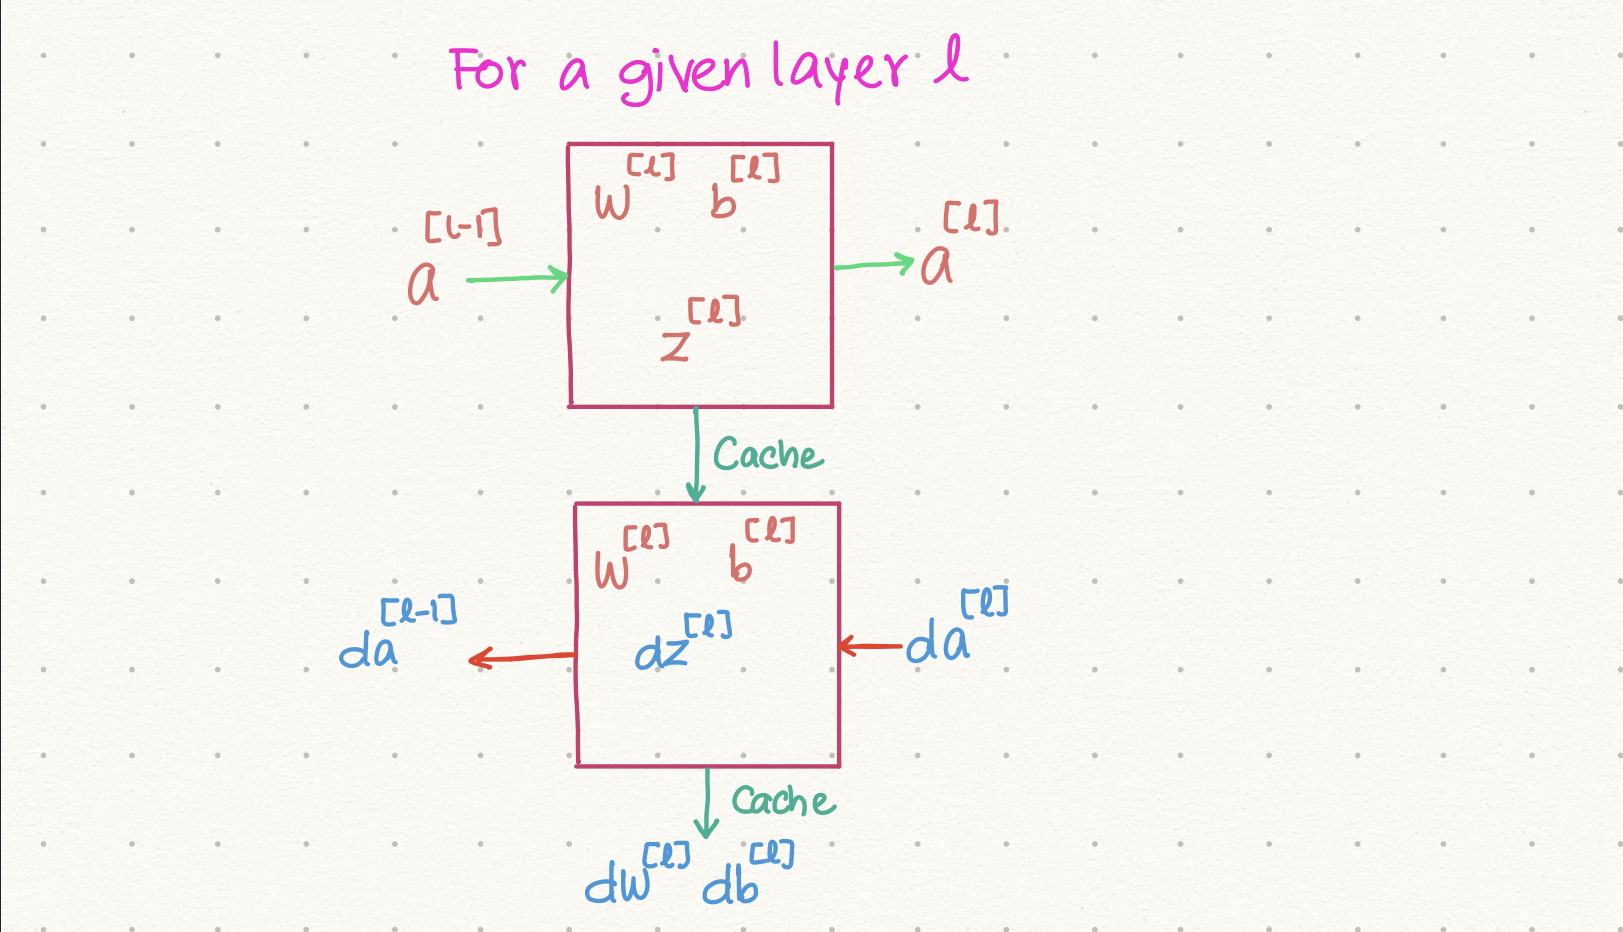 For a given layer l
W^[l] b^[l]
a^[l-1]
a^[l]
z^[l]
Cache
W^[l] b^[l]
da^[l-1]
dz^[l]
da^[l]
Cache
dW^[l] db^[l]